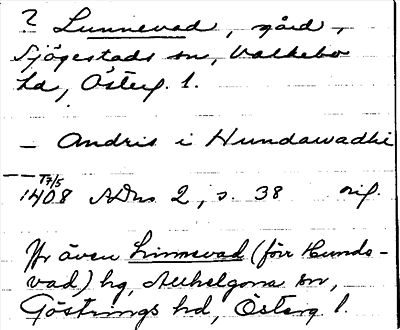 ? Lunnevad, gård,
Sjögestads sn, Valkebo
hd, Österg. l.
— Andris i Hundawadhi
— — 17/5
1408 SDns 2, s. 38 orig.
Jfr även Linnevad (förr Hunds-
vad) hg, Mikelgons sn,
Göstrings hd, Österg l.